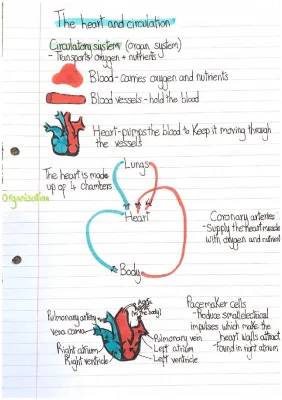 The heart and circulation
Circulatory system (organ system)
- Transports oxygen + nutrients
Blood - carries oxygen and nutrients
Blood vessels - hold the blood
Heart - pumps the blood to keep it moving through
the vessels
Lungs
The heart is made
up of 4 chambers
Organisation
Heart
Coronary arteries
- Supply the heart muscle
with oxygen and nutrient
Body
Aorta
(to the body)
Pulmonary artery
vena cava
Right atrium
Right ventricle
Pulmonary vein
Left atrium
Left ventricle
Pacemaker cells
- Produce small electrical
impulses which make the
heart walls
found in right atrium